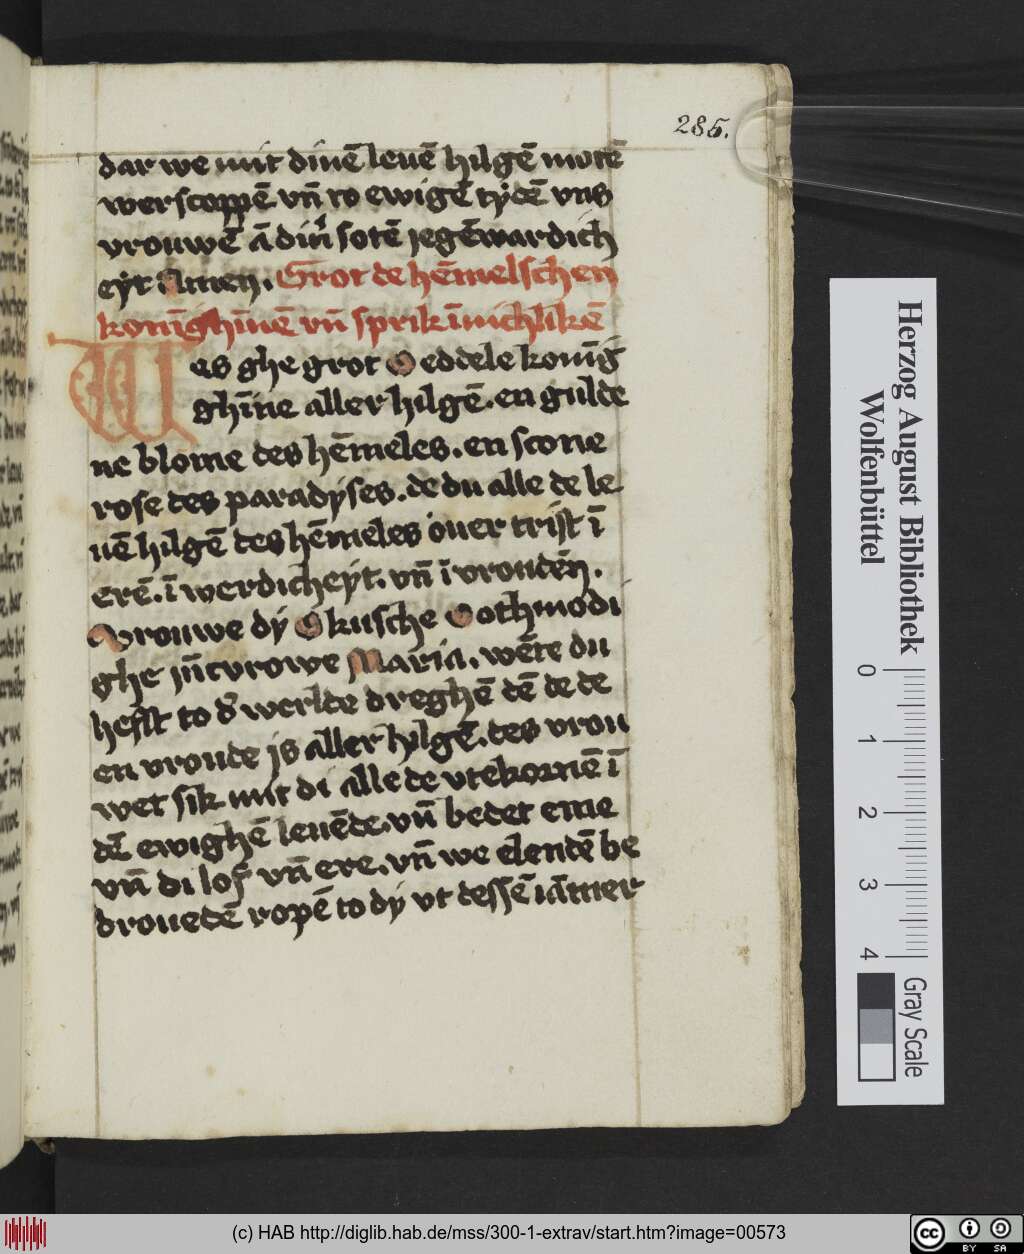 285.
dar we mit dinē leuē hilgē motē
werscoppē vñ to ewigē tydē vns
vrouwē ā dinˀ sotē jegēwardich
eyt Amen. Grot de hēmelschen
konīghīnē vñ sprik īnichlikē
Wes ghe grot O eddele konīg
ghīne aller hilgē. en gulde
ne blome des hēmeles. en scone
rose des paradyses. de du alle de le
uē hilgē des hēmeles ouer trist ī
erē. ī werdicheyt. vñ ī vroudēn.
Vrouwe dy O kusche Oothmodi
ghe jūcvrowe Maria. wēte du
hefst to dˀ werlde dreghē dē de de
en vroude js aller hilgē. des vrou
wet sik mit di alle de vtekornē ī
dē ewighē leuēde. vñ bedet eme
vñ di lof vñ ere. vñ we elendē be
drouedē ropē to dy vt dessē iāmer
Herzog August Bibliothek
Wolfenbüttel
0 1 2 3 4
Gray Scale
(c) HAB http://diglib.hab.de/mss/300-1-extrav/start.htm?image=00573
cc BY SA